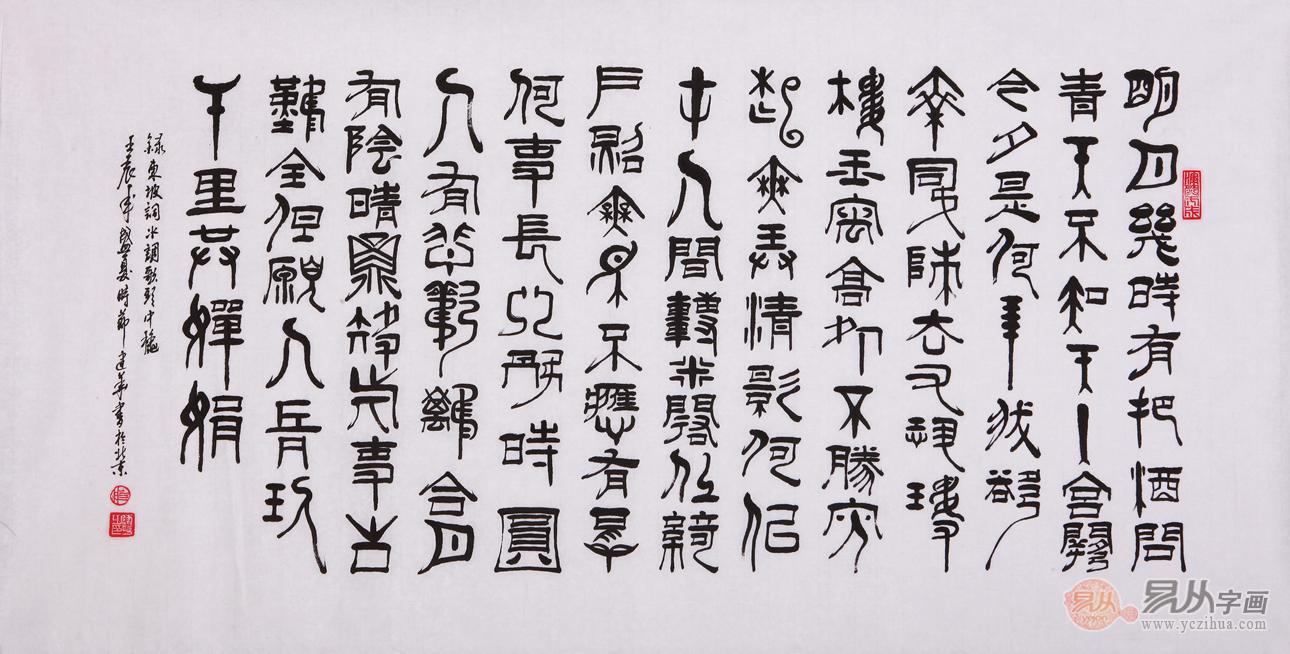 明月幾時有把酒問
青天不知天上宮闕
今夕是何年我欲
乘風歸去又恐瓊
樓玉宇高處不勝寒
起舞弄清影何似
在人間轉朱閣低綺
戶照無眠不應有恨
何事長向別時圓
人有悲歡離合月
有陰晴圓缺此事古
難全但願人長久
千里共嬋娟
錄東坡詞水調歌頭中秋
壬辰年盛夏時節建華書於北京
易从
易从字画
www.yczihua.com